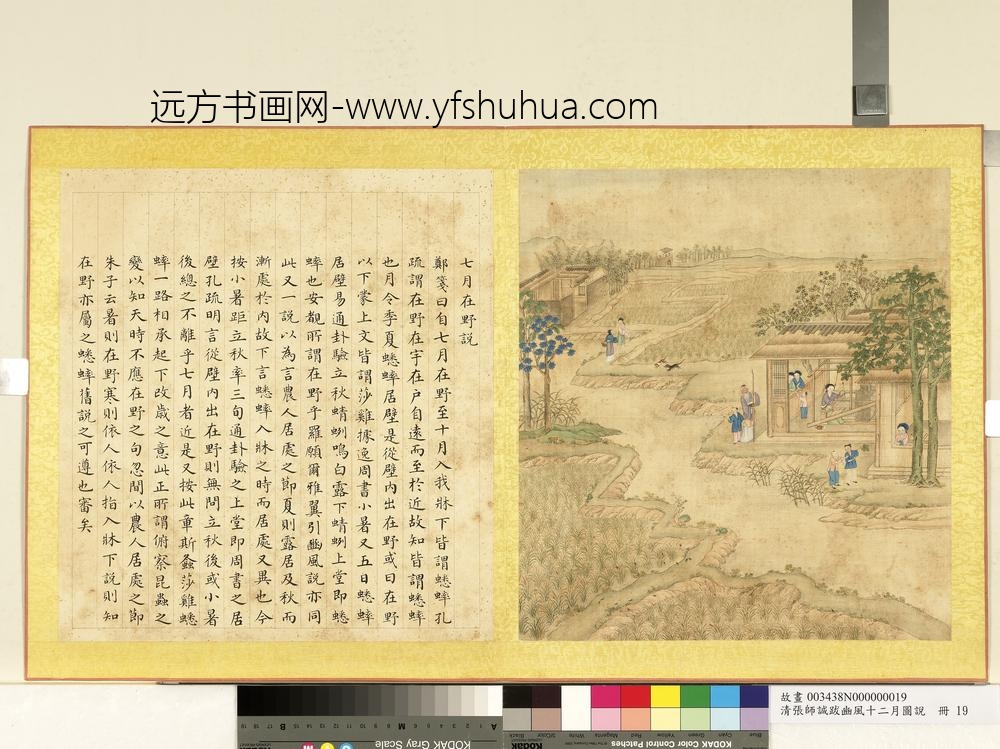 远方书画网-www.yfshuhua.com
七月在野説
鄭箋曰自七月在野至十月入我牀下皆謂蟋蟀孔
疏謂在野在宇在户自遠而至於近故知皆謂蟋蟀
也月令季夏蟋蟀居壁是從壁内出在野或曰在野
以下蒙上文皆謂莎雞據逸周書小暑又五日蟋蟀
居壁易通卦驗立秋蜻蛚鳴白露下蜻蛚上堂即蟋
蟀也安覩所謂在野乎羅願爾雅翼引豳風説亦同
此又一説以為言農人居處之節夏則露居及秋而
漸處於内故下言蟋蟀入牀之時而居處又異也今
按小暑距立秋率三旬通卦驗之上堂即周書之居
壁孔疏明言從壁内出在野則無問立秋後或小暑
後總之不離乎七月者近是又按此章斯螽莎雞蟋
蟀一路相承起下改歳之意此正所謂俯察昆蟲之
變以知天時不應在野之句忽間以農人居處之節
朱子云暑則在野寒則依人依人指入牀下説則知
在野亦屬之蟋蟀舊説之可遵也審矣
故畫 003438N000000019
清張師誠跋豳風十二月圖說 冊 19
KODAK Gray Scale
KODAK Color Control Patches
Blue
Cyan
Green
Yellow
Red
Magenta
White
3/Color
Black